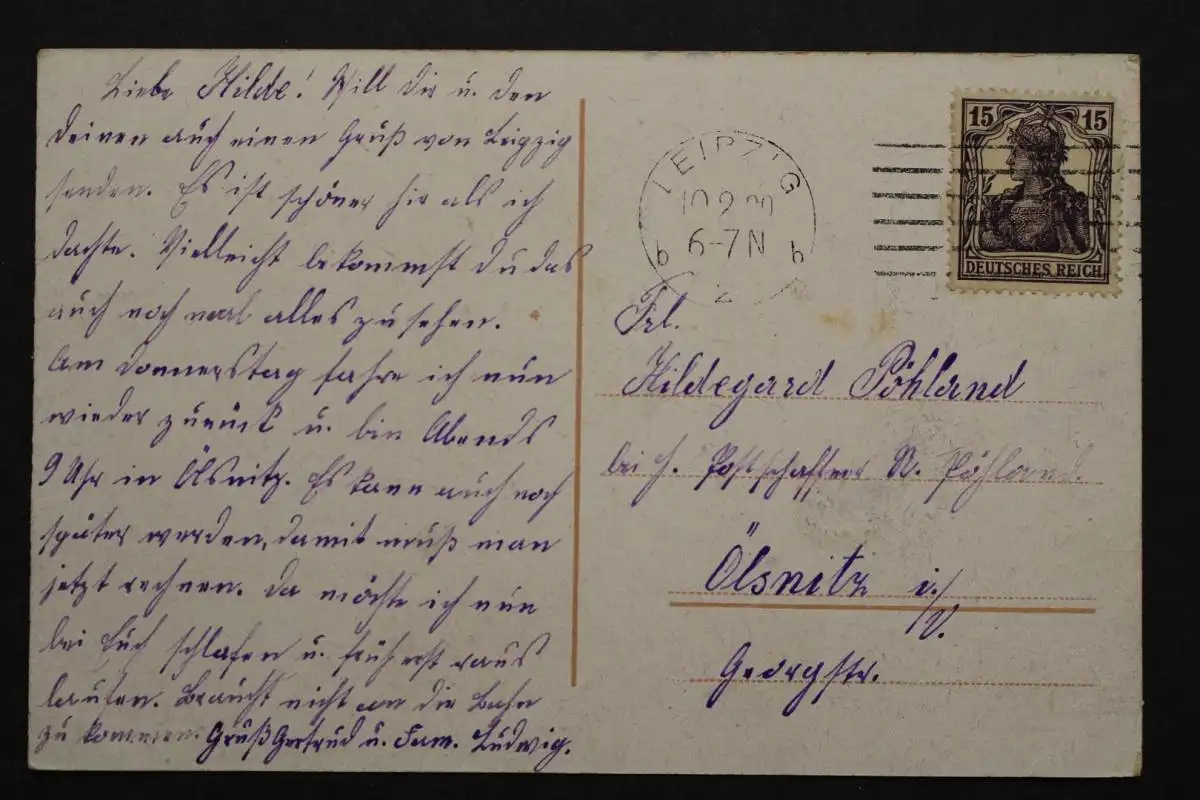 Liebe Hilde! Will dir u. den
deinen auch einen Gruß von Leipzig
senden. Es ist schöner hir als ich
dachte. Vielleicht bekommst du das
auch noch mal alles zu sehen.
Am Donnerstag fahre ich nun
wieder zurück u. bin Abends
9 Uhr in Ölsnitz. Es kann auch noch
später werden, damit muß man
jetzt rechnen. Da möchte ich nun
bei Euch schlafen u. früh erst raus
laufen. Braucht nicht an die Bahn
zu kommen. Gruß Gertrud u. Fam. Ludwig.
LEIPZIG
10.2.20
6-7N
b b
2
15 15
DEUTSCHES REICH
Frl.
Hildegard Pöhland
bei H. Postschaffner R. Pöhland.
Ölsnitz i./V.
Georgstr.